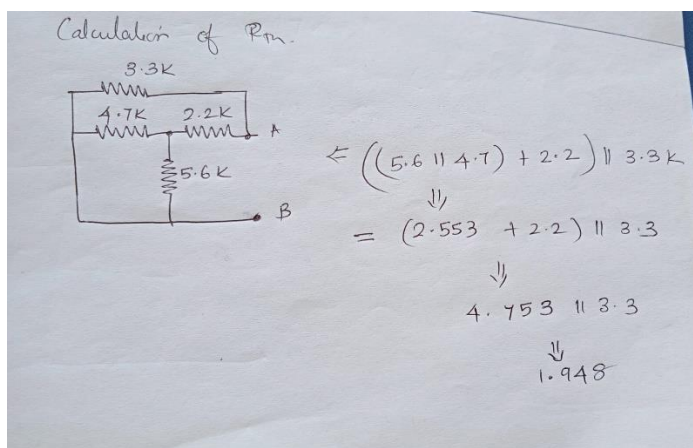 Calculation of RTh.
3.3K
4.7K 2.2K A
5.6K
B
⇐ ((5.6 || 4.7) + 2.2) || 3.3K
⇓
= (2.553 + 2.2) || 3.3
⇓
4.753 || 3.3
⇓
1.948